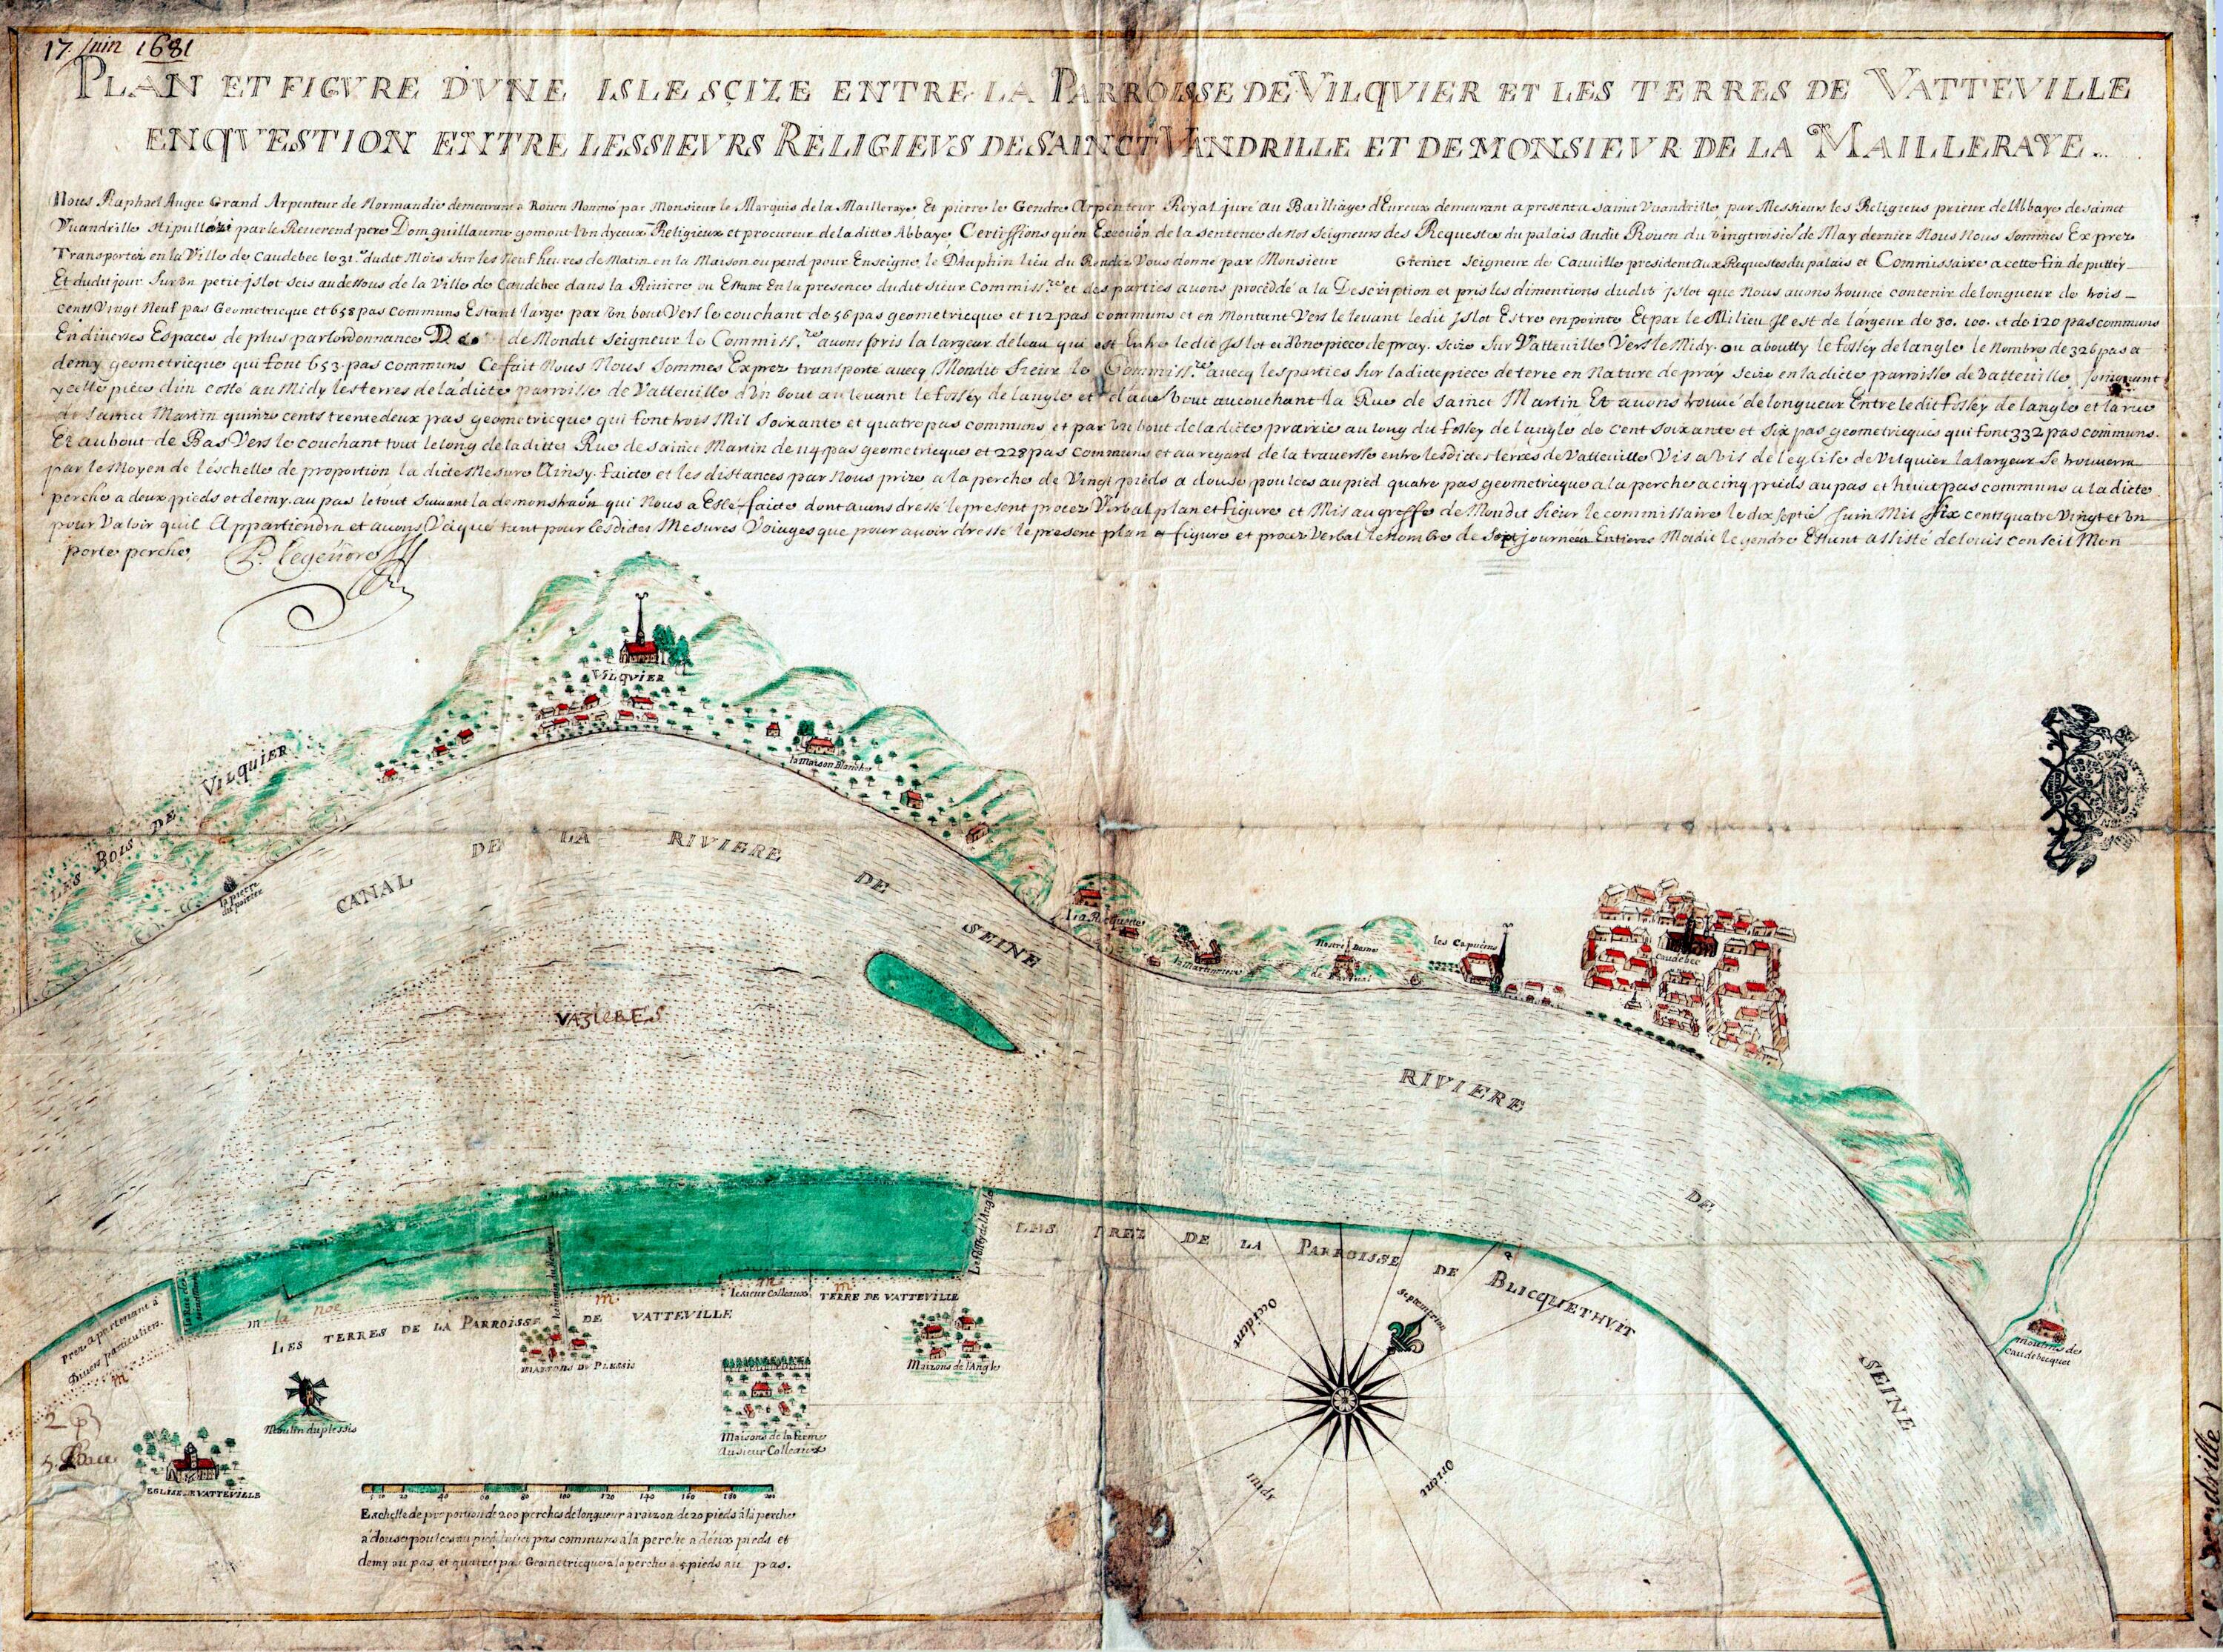 17 Juin 1681
PLAN ET FIGVRE DVNE ISLE SÇIZE ENTRE LA PARROISSE DE VILQVIER ET LES TERRES DE VATTEVILLE
EN QVESTION ENTRE LES SIEVRS RELIGIEVS DE SAINCT VANDRILLE ET DE MONSIEVR DE LA MAILLERAYE
Nous Raphael Auger Grand Arpenteur de Normandie demeurant a Rouen Nommé par Monsieur le Marquis de la Mailleraye, Et pierre le Gendre Arpenteur Royal juré au Bailliage d'Eureux demeurant a present a sainct Vuandrille, par Messieurs les Religieus prieur de Abbaye de sainct
Vuandrille stipullé par le Reuerend pere Dom guillaume gomont l'un dyceux Religieux et procureur de la ditte Abbaye, Certiffions qu'en Execuôn de la sentence de Nos seigneurs des Requestes du palais audit Rouen du vingtroisie de May dernier Nous Nous sommes Exprez
Transportez en la Ville de Caudebec le 31e dudit Mois sur les Neuf heures de Matin en la Maison ou pend pour Enseigne le Dauphin lieu du Rendez Vous donné par Monsieur Grenier seigneur de Cauuille president aux Requestes du palais et Commissaire a cette fin deputté
Et dudit jour sur un petit jslot scis au dessous de la Ville de Caudebec dans la Riuiere ou Estant En la presence dudit sieur Commissre et des parties auons procédé a la Description et pris les dimentions dudit jslot que Nous auons trouué contenir de longueur de trois
cents Vingt Neuf pas Geometricque et 658 pas communs Estant large par un bout Vers le couchant de 56 pas geometricque et 112 pas communs et en Montant Vers le leuant ledit jslot Estre en pointe Et par le Milieu Il est de largeur de 80. 100. et de 120 pas communs
En diuerses Espaces de plus par lordonnance De de Mondit seigneur le Commissre auons pris la largeur deleau qui est Entre ledit jslot et une piece de pray. seize sur Vatteuille Vers le Midy. ou aboutty le fossey de langle le Nombre de 326 pas a
demy geometricque qui font 653 pas communs Ce fait Nous Nous sommes Exprez transporté auecq Mondit sieur le Commissre auecq les parties sur la dicte piece de terre en Nature de pray seize en la dicte parroisse de Vatteuille, joingnant
ycelle piece d'un costé au Midy les terres de la dicte parroisse de Vatteuille d'un bout au leuant le fossey de langle et d'autre bout au couchant la Rue de sainct Martin Et auons trouué de longueur Entre ledit fossey de langle et la rue
de sainct Martin quinze cents trente deux pas geometricque qui font trois Mil soixante et quatre pas communs, et par un bout de la dicte prairie au long du fossey de langle de cent soixante et six pas geometricques qui font 332 pas communs.
Et au bout de Bas Vers le couchant tout le long de la ditte Rue de sainct Martin de 114 pas geometricque et 228 pas communs et au regard de la trauersse entre lesdictes terres de Vatteuille Vis a vis de leglise de Vilquier la largeur se trouuerra
par le Moyen de leschelle de proportion, la dicte Mesure Ainsy faicte et les distances par Nous prize a la perche de Vingt pieds a douse poulces au pied quatre pas geometricque a la perche a cinq pieds au pas et huict pas communs a la dicte
perche a deux pieds et demy. au pas le tout suiuant la demonstraôn qui Nous a Esté faicte dont auons dressé le present procez Verbal plan et figure et Mis au greffe de Mondit sieur le commissaire le dix septie Juin Mil six cents quatre Vingt et un
pour Valoir quil Appartiendra et auons Vaqué tant pour lesdictes Mesures Voiages que pour auoir dressé le present plan et figure et procez Verbal le nombre de sept journées Entieres Moidit legendre Estant assisté de louis conseil Mon
porte perche, P. legendre
VILQVIER
la Maison Blanche
LES BOIS DE VILQUIER
la pierre du poirier
CANAL DE LA RIVIERE DE SEINE
la Martiniere
Nostre Dame
les Capucins
Caudebec
VAZIERES
RIVIERE DE SEINE
Le fossey de l'Angle
LES PREZ DE LA PARROISSE DE BLICQUETHVIT
moulins de
Caudebecquet
Prez apartenant a
Diuers particuliers.
m
m la noe
m
m
m
le sieur Colleaux
TERRE DE VATTEVILLE
LES TERRES DE LA PARROISSE DE VATTEVILLE
MAISONS DV PLESSIS
Maizons de l'Angle
Moulin du plessis
Maisons de la ferme
du sieur Colleaux
EGLISE DE VATTEVILLE
Septentrion
Occident
Orient
Midy
5 10 20 40 60 80 100 120 140 160 180 200
Eschelle de proportion de 200 perches de longueur a raizon de 20 pieds a la perche
a douse poulces au pied huict pas communs a la perche a deux pieds et
demy au pas, et quatre pas Geometricque a la perche a 5 pieds au pas.